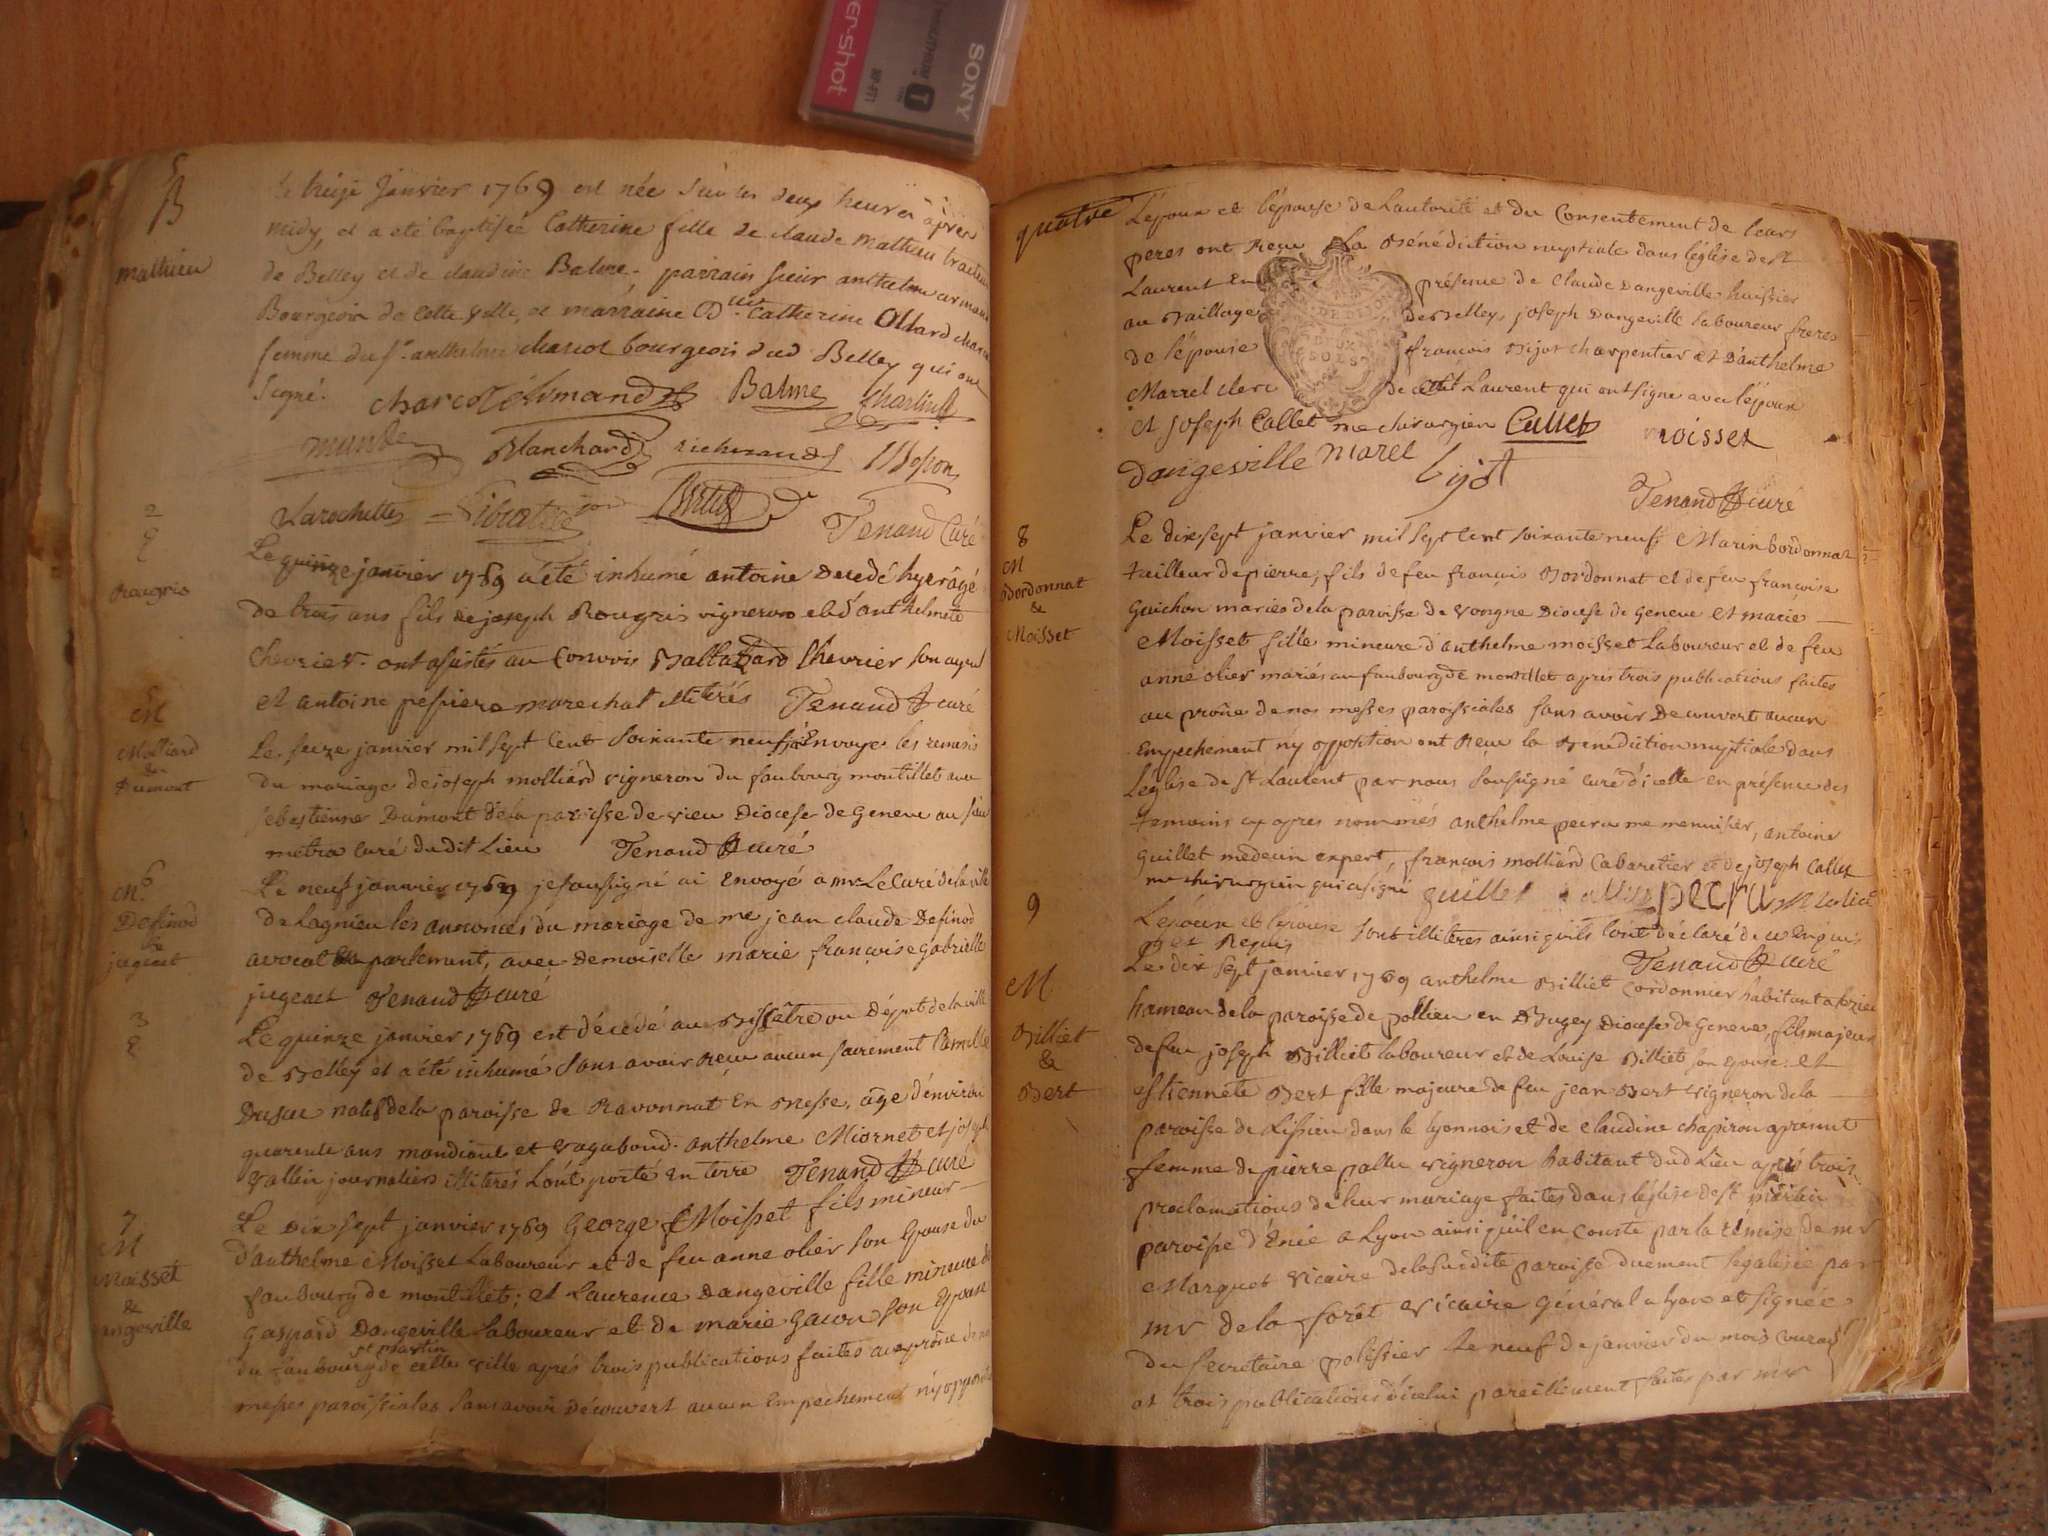 er-shot
SONY
5
B
mathieu
Le treize Janvier 1769 est née sur les deux heures après
midy, et a été baptisée Catherine fille de claude mathieu traiteur
de Belley et de claudine Balme. parrain sieur anthelme
Bourgeois de cette ville, et marraine Catherine Ollard
femme du Sr. anthelme charcot bourgeois dud Belley qui ont
signé. Balme
Blanchard richerand
Larochette Tenand Curé
2
Rougris
Le quinze janvier 1769 a été inhumé antoine decedé hyer âgé
de trois ans fils de joseph Rougris vigneron et d'anthelmete
Chevrier. ont assistés au Convois Baltazard Chevrier son ayeul
et antoine pessiere marechal illiterés Tenand curé
5
M
Molliard
&
Dumont
Le seize janvier mil sept cent soixante neuf j'ai Envoyé les remises
du mariage de joseph molliard vigneron du faubourg montillet avec
sebastienne Dumont de la paroisse de vieu Diocese de Geneve au sieur
metra curé dudit Lieu Tenand curé
M. 6
Definod
&
jugeat
Le neuf janvier 1769 je soussigné ai Envoyé a mr. Le Curé de la ville
de Lagnieu les annonces du mariage de me jean claude Definod
avocat parlement, avec Demoiselle marie françoise Gabrielle
jugeact Tenand curé
3
Le quinze janvier 1769 est décédé au Bissêtre ou Dépot de la ville
de Belley et a été inhumé sans avoir Reçu aucun sacrement Camille
natif de la paroisse de Ravonnat En Bresse, âgé d'environ
quarente ans mandiant et vagabond. anthelme Miornet et joseph
vallin journaliers illiterés L'ont porté en terre Tenand curé
7
M
Moisset
&
angeville
Le Dix sept janvier 1769 George Moisset fils mineur
d'anthelme Moisset Laboureur et de feu anne olier son Epouse du
faubourg de montillet; et Laurence Dangeville fille mineure de
gaspard Dangeville laboureur et de marie Gacon son Epouse
st martin
du faubourg de cette ville aprés trois publications faites au prône de nos
messes paroissiales sans avoir découvert aucun Empechement ny opposition
quatre
L'époux et l'épouse de Lautorité et du Consentement de leurs
peres ont Reçu La Bénédiction nuptiale dans l'église de st
Laurent En présence de Claude Dangeville huissier
au Baillage de Belley, joseph Dangeville laboureur freres
de l'épouse françois Bijot charpentier et d'anthelme
Marrel clerc de Laurent qui ont signe avec l'époux
et joseph Callet me chirurgien Callet moisset
Dangeville Marel bijot
Tenand curé
8
M
Bordonnat
&
Moisset
Le dix sept janvier mil sept cent soixante neuf Marin bordonnat
tailleur de pierre, fils de feu françois Bordonnat et de feu françoise
Guichon mariés de la paroisse de vongne Diocese de Geneve et marie
Moisset fille mineure d'anthelme moisset Laboureur et de feu
anne olier mariés au faubourg de montillet apres trois publications faites
au prône de nos messes paroissiales sans avoir Decouvert aucun
Empechement ny opposition ont Reçu la Benediction nuptiale dans
L'église de St Laurent par nous soussigné curé d'icelle en présence des
temoins cy apres nommés anthelme pecru me menuisier, antoine
Guillet medecin expert, françois molliard Cabaretier et de joseph Callet
me chirurgien qui a signé guillet pecru
L'époux et l'épouse sont illitéres ainsi qu'ils l'ont déclaré de ce Enquis
et Requis Tenand curé
9
M
Billiet
&
Bert
Le dix sept janvier 1769 anthelme Billiet Cordonnier habitant
hameau de la paroisse de pollieu en Bugey Diocese de Geneve, fils majeur
de feu joseph Billiet laboureur et de Louise Billiet son epouse. et
Estiennete Bert fille majeure de feu jean Bert vigneron de la
paroisse de Lissieu dans le lyonnois et de claudine chapiron apresent
femme de pierre pallu vigneron habitant dud Lieu après trois
proclamations de leur mariage faites dans l'église de st martin
paroisse d'Enée a Lyon ainsi qu'il en conste par la rémise de mr
Marquet vicaire de la susdite paroisse duement legalisée par
mr de la forêt vicaire général a Lyon et signée
du secretaire polissier Le neuf de janvier du mois courant
et trois publications d'icelui pareillement faites par mr